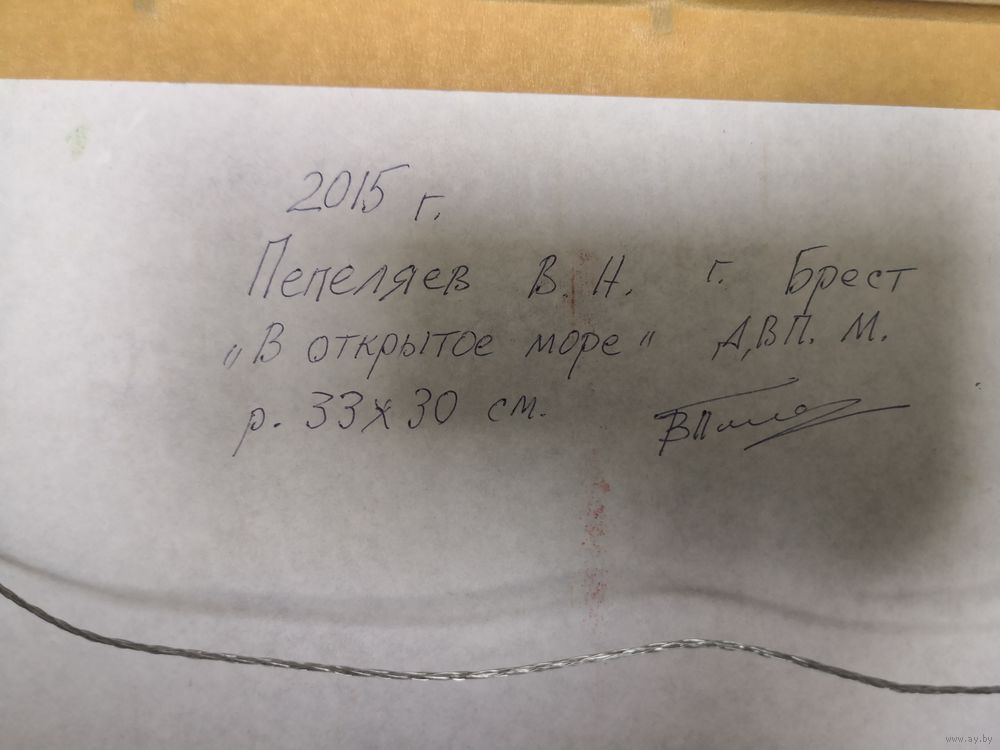 2015 г.
Пепеляев В. Н. г. Брест
„В открытое море" Д,ВП. М.
р. 33х30 см.
www.ay.by